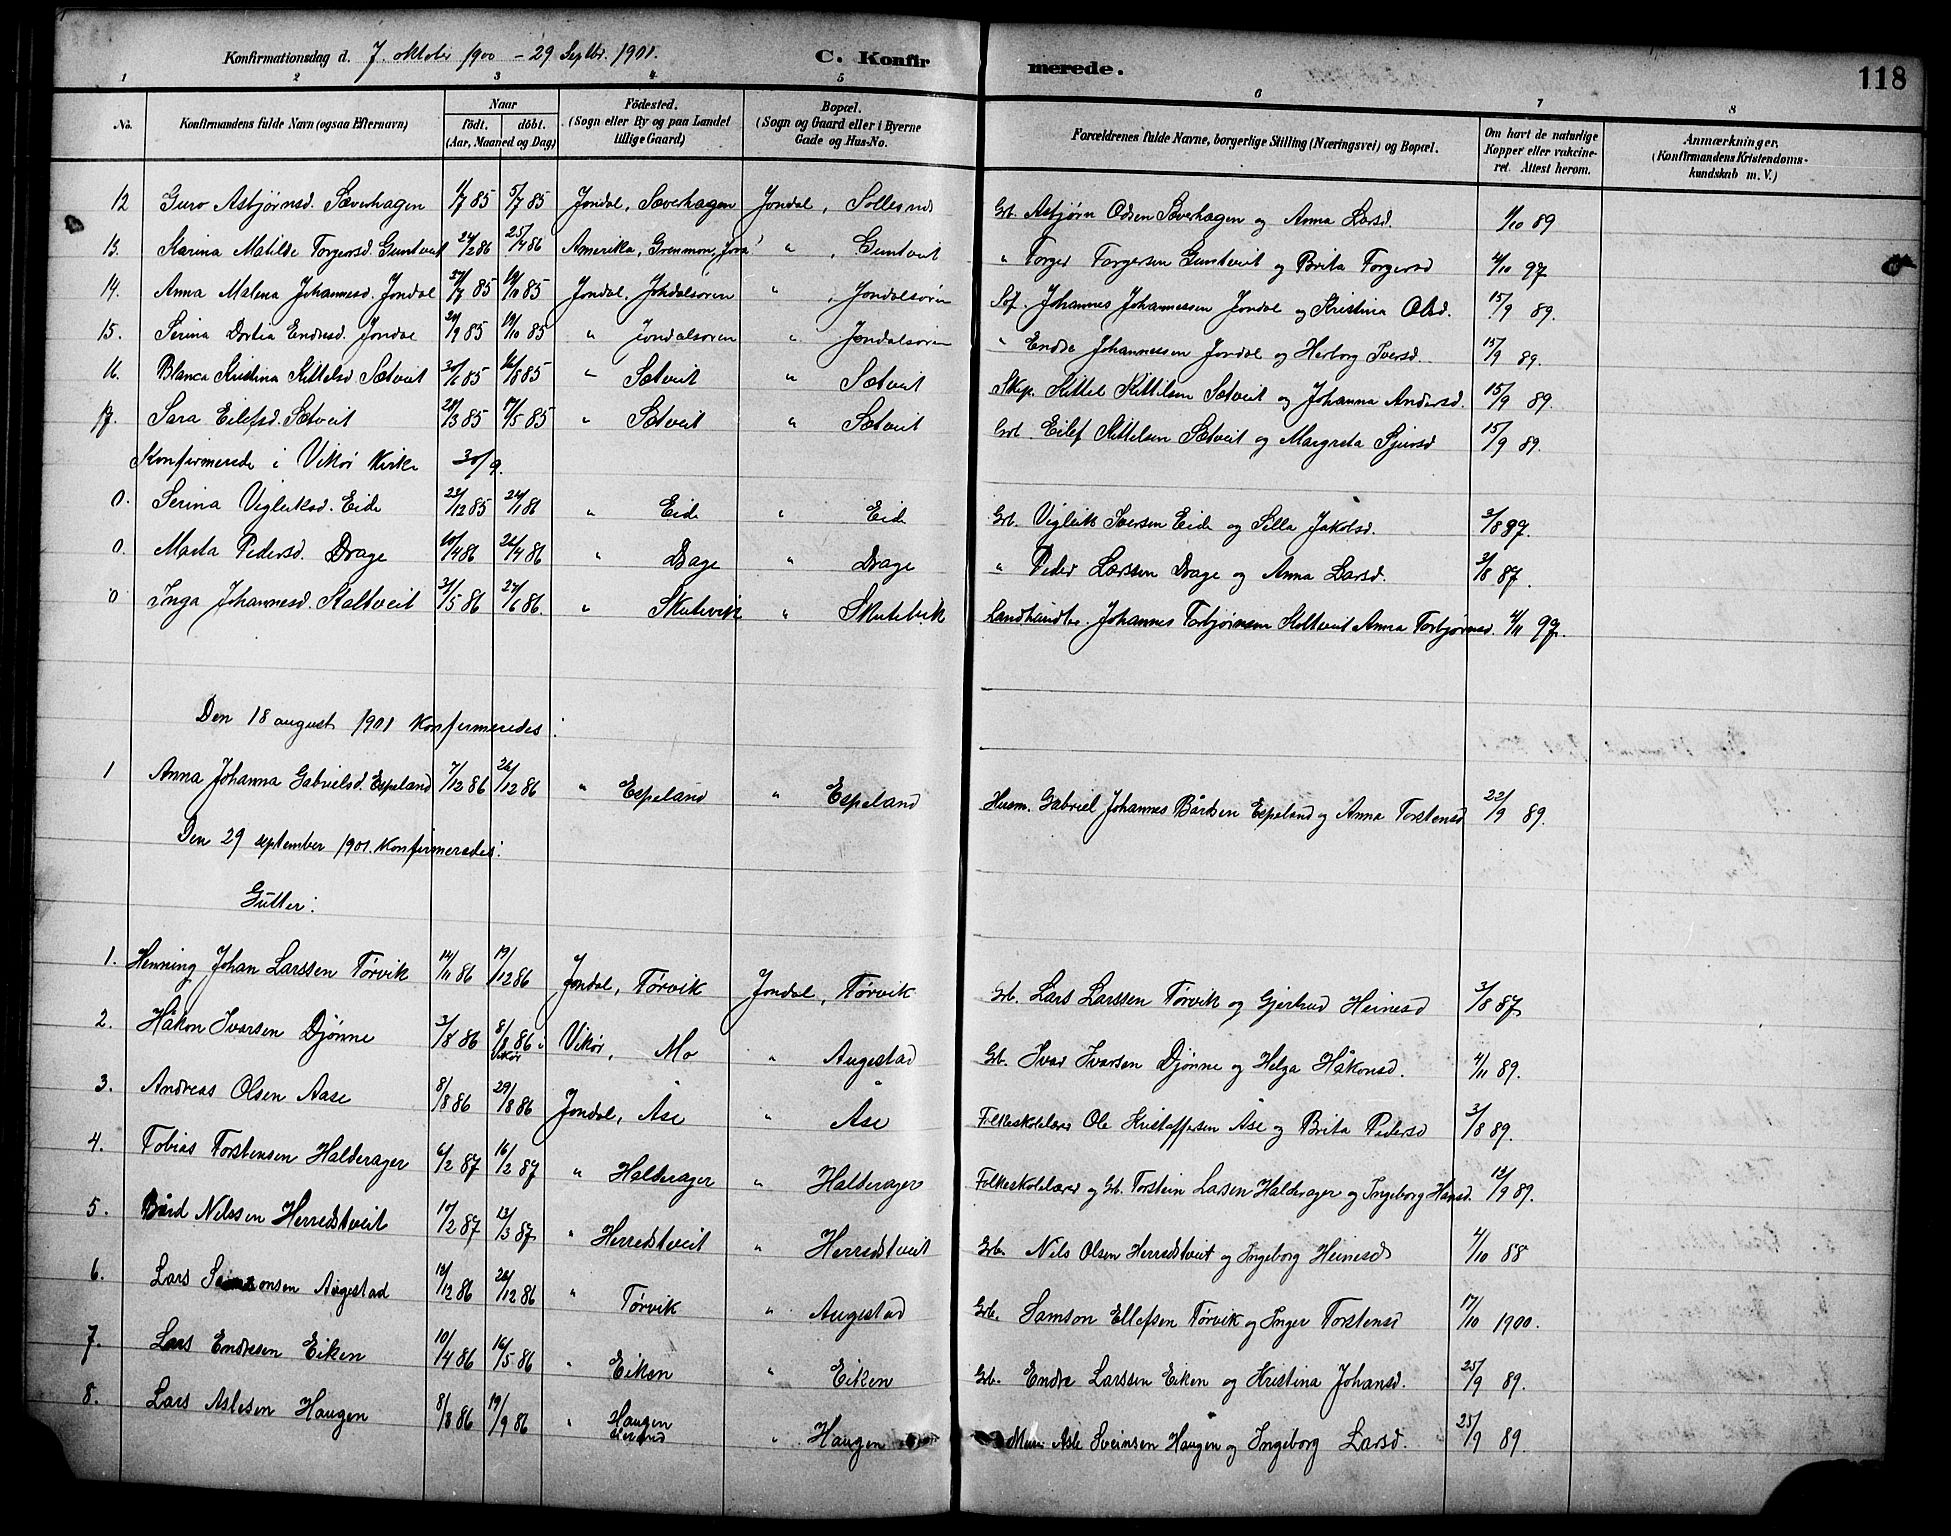 Konfirmationsdag d. 7. oktober 1900 - 29 Septbr. 1901. C. Konfirmerede. 118
1 2 3 4 5 6 7 8
No. Konfirmandens fulde Navn (ogsaa Efternavn) Naar født. døbt. (Aar, Maaned og Dag) Fødested. (Sogn eller By og paa Landet tillige Gaard) Bopæl. (Sogn og Gaard eller i Byerne Gade og Hus-No. Forældrenes fulde Navne, borgerlige Stilling (Næringsvei) og Bopæl. Om havt de naturlige Kopper eller vakcineret. Attest herom. Anmærkninger. (Konfirmandens Kristendomskundskab m. V.)
12 Guro Asbjørnsd. Sæverhagen 1/7 85 5/7 85 Jondal, Sæverhagen Jondal, Sollesnes Grb. Asbjørn Odsen Sæverhagen og Anna Larsd. 1/10 89
13. Karina Matilde Torgersd. Guntveit 24/2 86 25/4 86 Amerika, Grenmon, Jova " , Guntveit " Torger Torgersen Guntveit og Brita Torgersd 4/10 97
14. Anna Malena Johannesd. Jondal 27/7 85 19/10 85 Jondal, Jondalsøren " , Jondalsøren Sof. Johannes Johannessen Jondal og Kristina Olsd. 15/9 89.
15. Serina Dortea Endresd. Jondal 29/9 85 19/10 85 " Jondalsøren " Jondalsøren " Endre Johannessen Jondal og Herborg Iversd. 15/9 89.
16. Blanca Kristina Kittelsd Sætveit 30/6 85 16/8 85 " Sætveit " Sætveit Skip. Kittel Kittilsen Sætveit og Johanna Andersd. 15/9 89.
17. Sara Eilefsd. Sætveit 28/3 85 17/5 85 " Sætveit " Sætveit Grb. Eilef Kittelsen Sætveit og Margreta Sjursd 15/9 89.
Konfirmerede i Vikør Kirke 30/9.
0. Serina Vigleiksd. Eide 22/12 85 24/1 86 " Eide " Eide Grb. Vigleik Iversen Eide og Silla Jakobsd. 3/8 87.
0. Marta Pedersd. Drage 10/4 86 26/4 86 " Drage " Drage " Peder Larssen Drage og Anna Larsd. 3/8 87.
0 Inga Johannesd. Haltveit 31/5 86 27/6 86. " Skutevik " Skutevik Landhandler. Johannes Torbjørnsen Holtveit Anna Torbjørnsd. 4/11 97.
Den 18 august 1901 Konfirmeredes:
1 Anna Johanna Gabrielsd. Espeland 7/12 86 26/12 86 " Espeland " Espeland Husm. Gabriel Johannes Bårdsen Espeland og Anna Torstensd 22/9 89.
Den 29 september 1901. Konfirmeredes:
Gutter:
1. Henning Johan Larssen Tørvik 14/11 86 19/12 86 Jondal, Tørvik Jondal, Tørvik Grb. Lars Larssen Tørvik og Gjertrud Heinesd 3/8 87
2. Håkon Ivarsen Djønne 3/8 86 8/8 86. Vikør Vikør, Mo " Augestad Grb. Ivar Ivarsen Djønne og Helga Håkonsd. 4/11 89.
3. Andreas Olsen Aase 8/8 86 29/8 86 Jondal, Åse " Åse Folkeskolelærer Ole Kristoffersen Åse og Brita Pedersd 3/8 89.
4. Tobias Torstensen Halderager 6/2 87 16/2 87 " Halderager " Halderager Folkeskolelærer og Grb. Torstein Larsen Halderager og Ingeborg Hansd. 12/9 89.
5. Bård Nelssen Herredstveit 17/2 87 13/3 87 " Herredstveit " Herredstveit Grb. Nils Olsen Herredstveit og Ingeborg Heinesd 4/10 88
6. Lars Samsonsen Augestad 12/12 86 26/12 86 " Tørvik " Augestad Grb. Samson Ellefsen Tørvik og Inger Torstensd 17/10 1900.
7. Lars Endresen Eiken 10/4 86 16/5 86 " Eiken " Eiken Grb. Endre Larssen Eiken og Kristina Johansd. 25/9 89.
8. Lars Aslesen Haugen 8/8 86 19/9 86 " Haugen " Haugen Asle Sveinsen Haugen og Ingeborg Larsd. 25/9 89